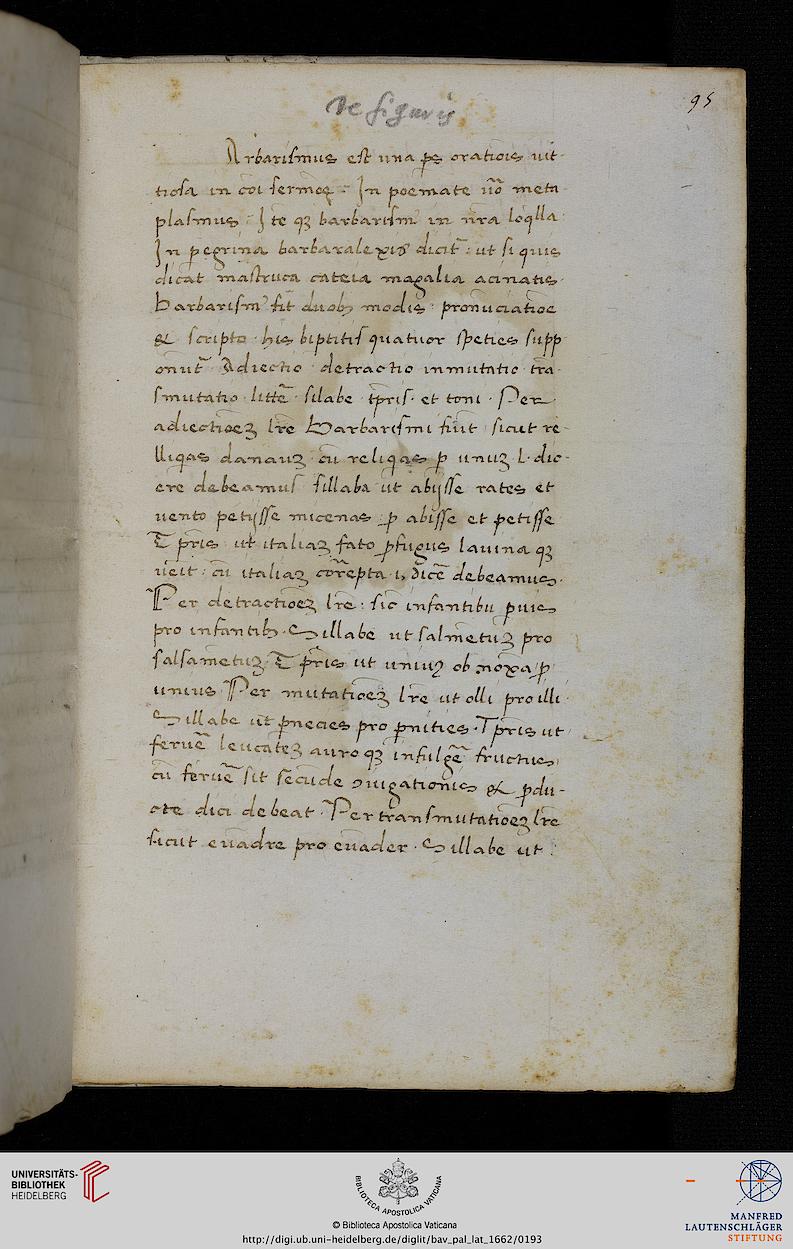 De figuris
95
Arbarismus est una ꝑs oratiois uit-
tiosa in cōi sermoe · In poemate uō meta
plasmus · Ite qꝫ barbarism' in nr̄a loqlla
In ꝑegrina barbaralexis dicit̄ : ut si quis
dicat mastruca cateia magalia acinatis ·
Barbarism' fit duobꝫ modis · pronūciatioe
& scripto · his biptitis quatuor speties supp
onūt̄ Adiectio · detractio inmutatio trā-
smutatio · litte᷑ · silabe · tp̄ris · et toni · Per
adiectioeꝫ lr̄e Barbarismi fiūt sicut re-
lliqas danauꝫ · cū reliqas ꝑ unuꝫ · l · dic-
ere debeamus sillaba ut abijsse rates et
uento petijsse micenas · ꝓ abisse et petisse
Tp̄ris · ut italiaꝫ fato ꝓfugus lauina qꝫ
ueit : cū italiaꝫ correpta i, dice᷑ debeamus ·
Per detractioeꝫ lr̄e : sic infantibu ꝑuis
pro infantibꝫ · Sillabe ut salmetuꝫ pro
salsametuꝫ · Tp̄ris ut uniuꝰ ob noxa ꝓ
unius · Per mutatioeꝫ lr̄e ut olli pro illi ·
Sillabe ut ꝑnecies pro ꝑnities · Tp̄ris ut
feruē leucateꝫ auro qꝫ infulgē fructus
cū feruē sit secūde ꝯiugationis & ꝓdu-
cte dici debeat · Per transmutatioeꝫ lr̄e
sicut euādre pro euāder · Sillabe ut :
UNIVERSITÄTS-
BIBLIOTHEK
HEIDELBERG
BIBLIOTECA APOSTOLICA VATICANA
© Biblioteca Apostolica Vaticana
http://digi.ub.uni-heidelberg.de/diglit/bav_pal_lat_1662/0193
MANFRED
LAUTENSCHLÄGER
STIFTUNG